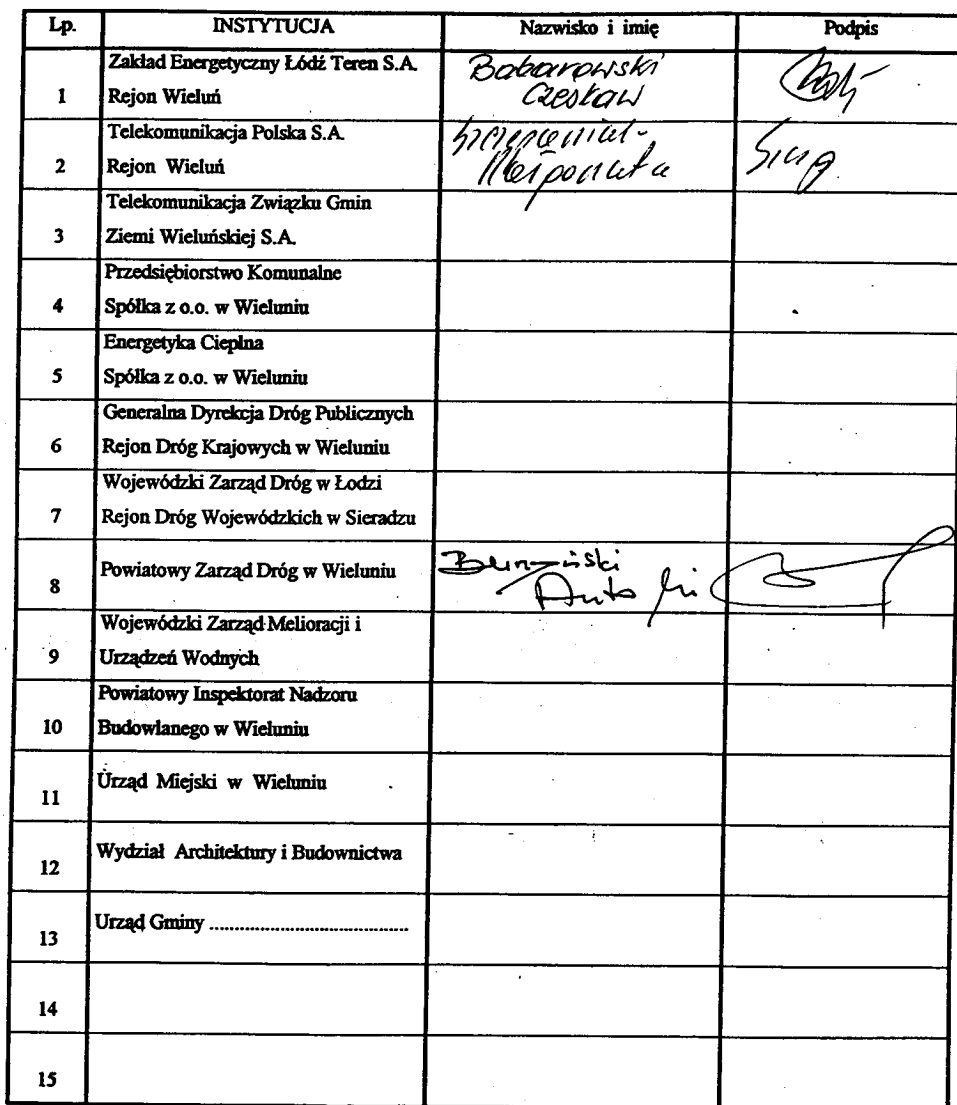 Lp. INSTYTUCJA Nazwisko i imię Podpis
Zakład Energetyczny Łódź Teren S.A. Babarowski
1 Rejon Wieluń Czesław
Telekomunikacja Polska S.A.
2 Rejon Wieluń
Telekomunikacja Związku Gmin
3 Ziemi Wieluńskiej S.A.
Przedsiębiorstwo Komunalne
4 Spółka z o.o. w Wieluniu
Energetyka Cieplna
5 Spółka z o.o. w Wieluniu
Generalna Dyrekcja Dróg Publicznych
6 Rejon Dróg Krajowych w Wieluniu
Wojewódzki Zarząd Dróg w Łodzi
7 Rejon Dróg Wojewódzkich w Sieradzu
8 Powiatowy Zarząd Dróg w Wieluniu
Wojewódzki Zarząd Melioracji i
9 Urządzeń Wodnych
Powiatowy Inspektorat Nadzoru
10 Budowlanego w Wieluniu
11 Urząd Miejski w Wieluniu
12 Wydział Architektury i Budownictwa
13 Urząd Gminy ........................................
14
15